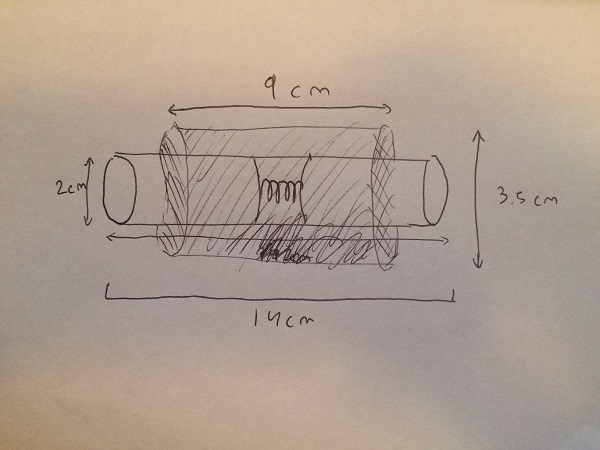 9 cm
2cm
3.5 cm
14cm